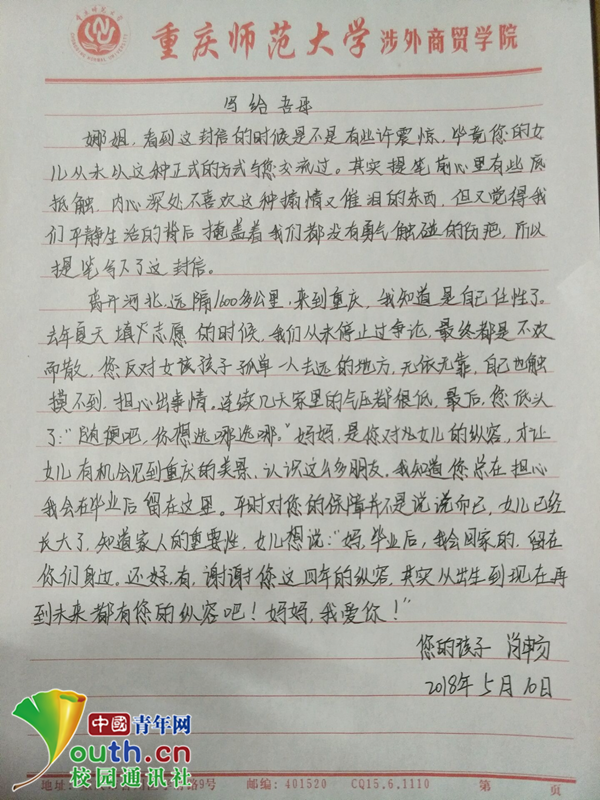 重庆师范大学涉外商贸学院
写给吾母
娜姐，看到这封信的时候是不是有些许震惊，毕竟您的女
儿从未从这种正式的方式与您交流过。其实提笔前心里有些底
抵触，内心深处不喜欢这种搧情又催泪的东西，但又觉得我
们平静生活的背后掩盖着我们都没有勇气触碰的伤疤，所以
提笔写下了这封信。
离开河北，远隔1600多公里，来到重庆，我知道是自己任性了。
去年夏天填火志愿的时候，我们从未停止过争论，最终都是不欢
而散，您反对女孩孩子孤单一人去远的地方，无依无靠，自己也触
摸不到，担心出事情。连续几天家里的气压都很低，最后，您低头
了：“随便吧，你想选哪选哪。”妈妈，是您对女儿的纵容，才让
女儿有机会见到重庆的美景、认识这么多朋友。我知道您总在担心
我会在毕业后留在这里。平时对您的保障并不是说说而已，女儿已经
长大了，知道家人的重要性，女儿想说：“妈，毕业后，我会回家的，留在
你们身边。还好，有，谢谢您这四年的纵容，其实从出生到现在再
到未来都有您的纵容吧！妈妈，我爱你！”
您的孩子 肖畅
2018年5月10日
中國青年网
youth.cn
校园通讯社
地址： 9号 邮编：401520 CQ15.6.1110 第 页